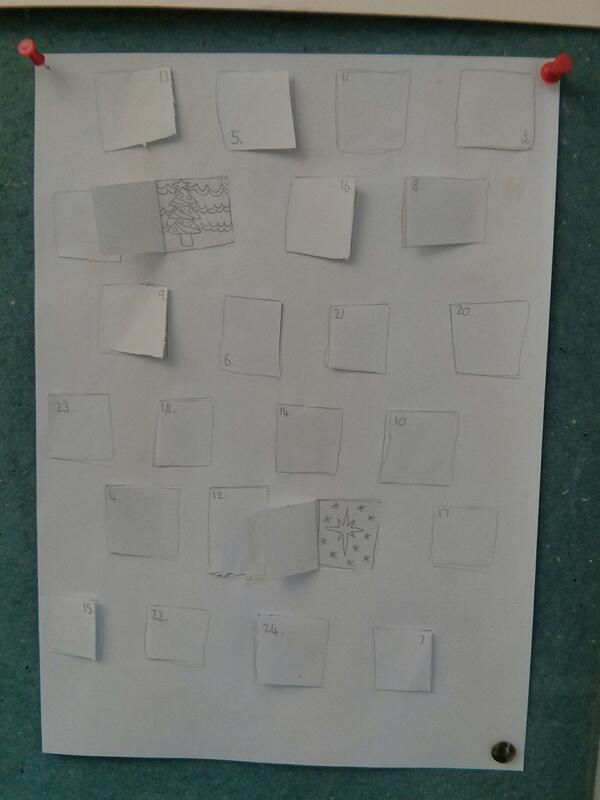 13.
5.
11.
3.
16.
8.
9.
6.
21
20.
23.
18.
14.
10.
4.
12.
17.
15.
22.
24.
7